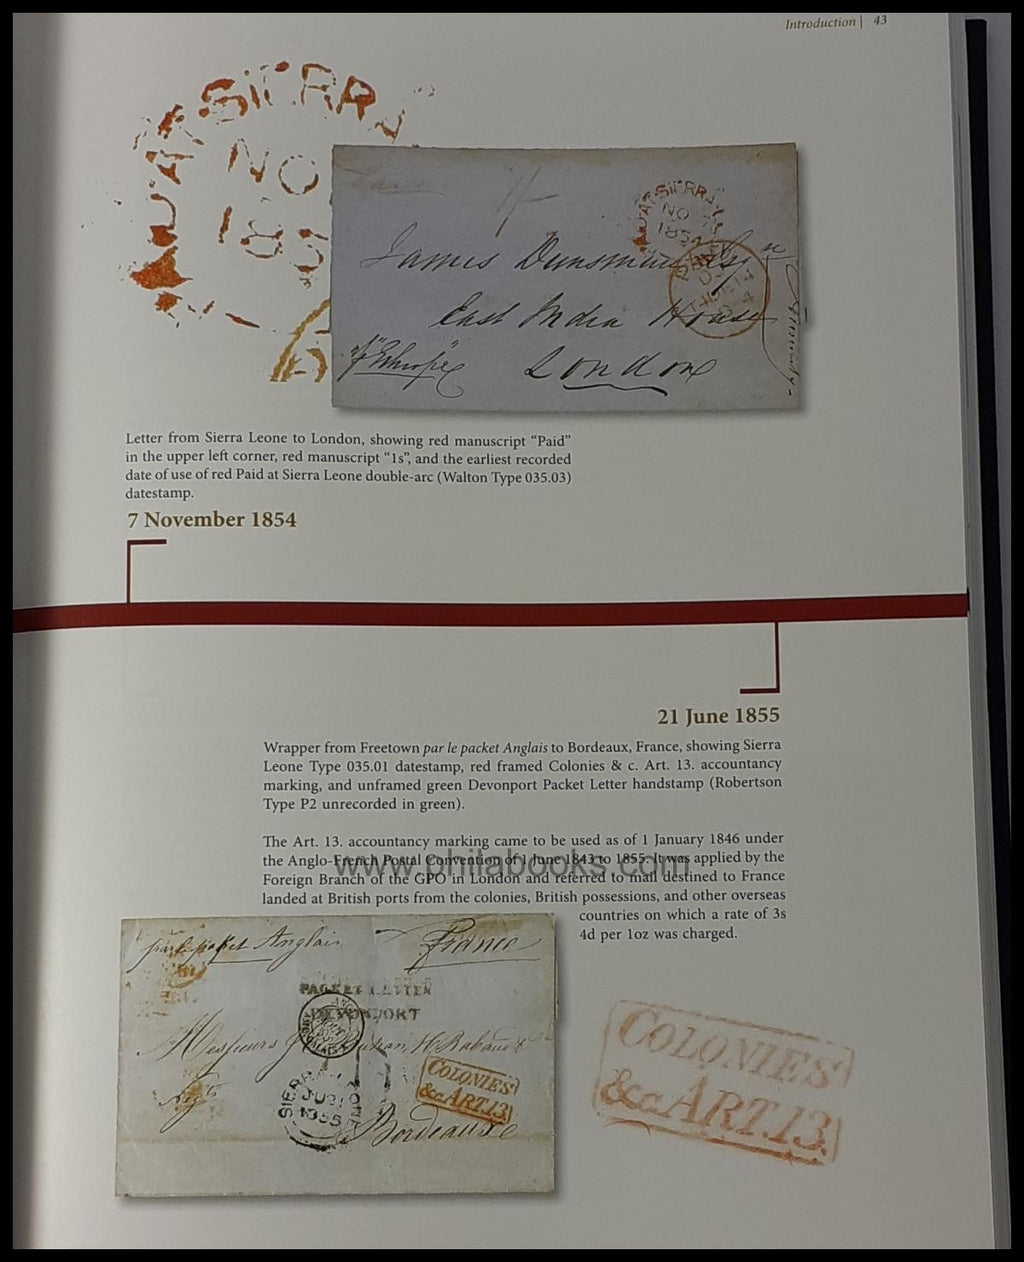 Introduction | 43
SIERRA
NO
185
Paid
1/-
James Dunsmure Esqr
East India House
London
SIERRA L
NO 7
185
PAID
14
Letter from Sierra Leone to London, showing red manuscript “Paid”
in the upper left corner, red manuscript “1s”, and the earliest recorded
date of use of red Paid at Sierra Leone double-arc (Walton Type 035.03)
datestamp.
7 November 1854
21 June 1855
Wrapper from Freetown par le packet Anglais to Bordeaux, France, showing Sierra
Leone Type 035.01 datestamp, red framed Colonies & c. Art. 13. accountancy
marking, and unframed green Devonport Packet Letter handstamp (Robertson
Type P2 unrecorded in green).
The Art. 13. accountancy marking came to be used as of 1 January 1846 under
the Anglo-French Postal Convention of 1 June 1843 to 1855. It was applied by the
Foreign Branch of the GPO in London and referred to mail destined to France
landed at British ports from the colonies, British possessions, and other overseas
countries on which a rate of 3s
4d per 1oz was charged.
www.philabooks.com
par le paket Anglais
France
PACKET LETTER
DEVONPORT
Messieurs
Bordeaux
SIERRA L
JU 21
1855
ONE
COLONIES
&c ART.13.
COLONIES
&c ART.13.